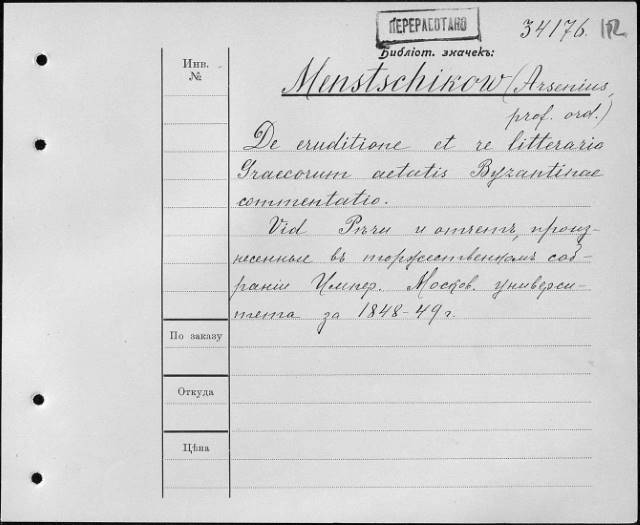 ПЕРЕРАБОТАНО
34176.
Библіот. значекъ:
Инв.
№
Menstschikow (Arsenius,
prof. ord.)
De eruditione et re litteraria
Graecorum aetatis Byzantinae
commentatio.
Vid Рѣчи и отчетъ, произ-
несенные въ торжественномъ соб-
раніи Импер. Москов. универси-
тета за 1848-49 г.
По заказу
Откуда
Цѣна